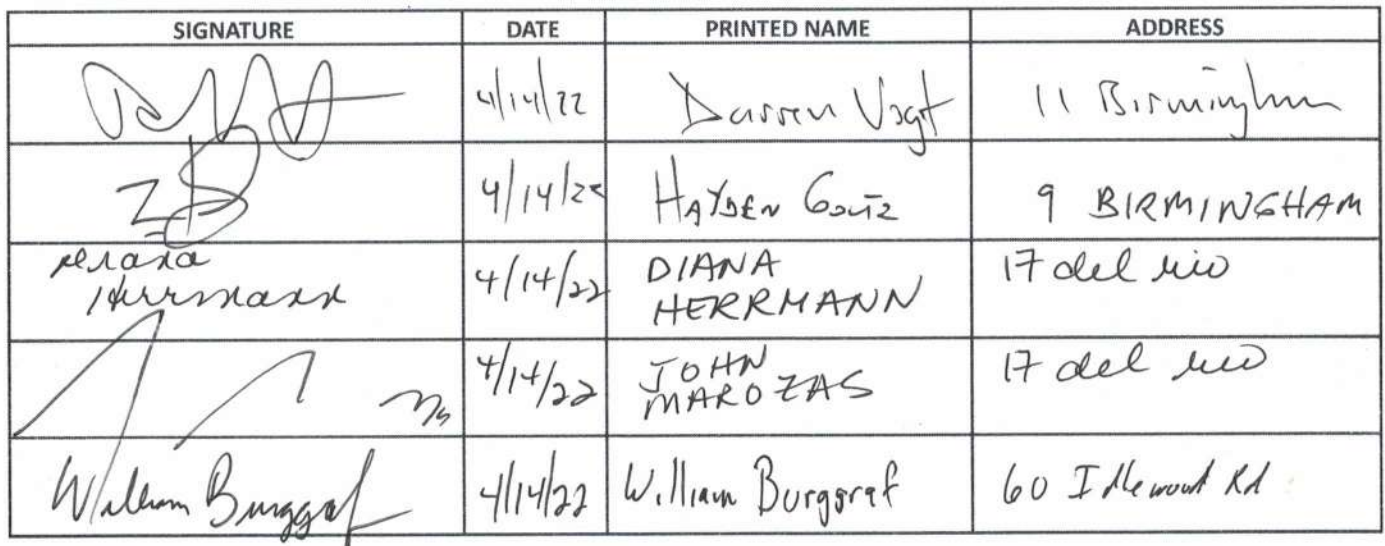 SIGNATURE DATE PRINTED NAME ADDRESS
4/14/22 Darren Vogt 11 Birmingham
4/14/22 HAYDEN 9 BIRMINGHAM
Diana
Herrmann 4/14/22 DIANA
HERRMANN 17 del rio
4/14/22 JOHN
MAROZAS 17 del rio
William Burggraf 4/14/22 William Burggraf 60 Idlewood Rd